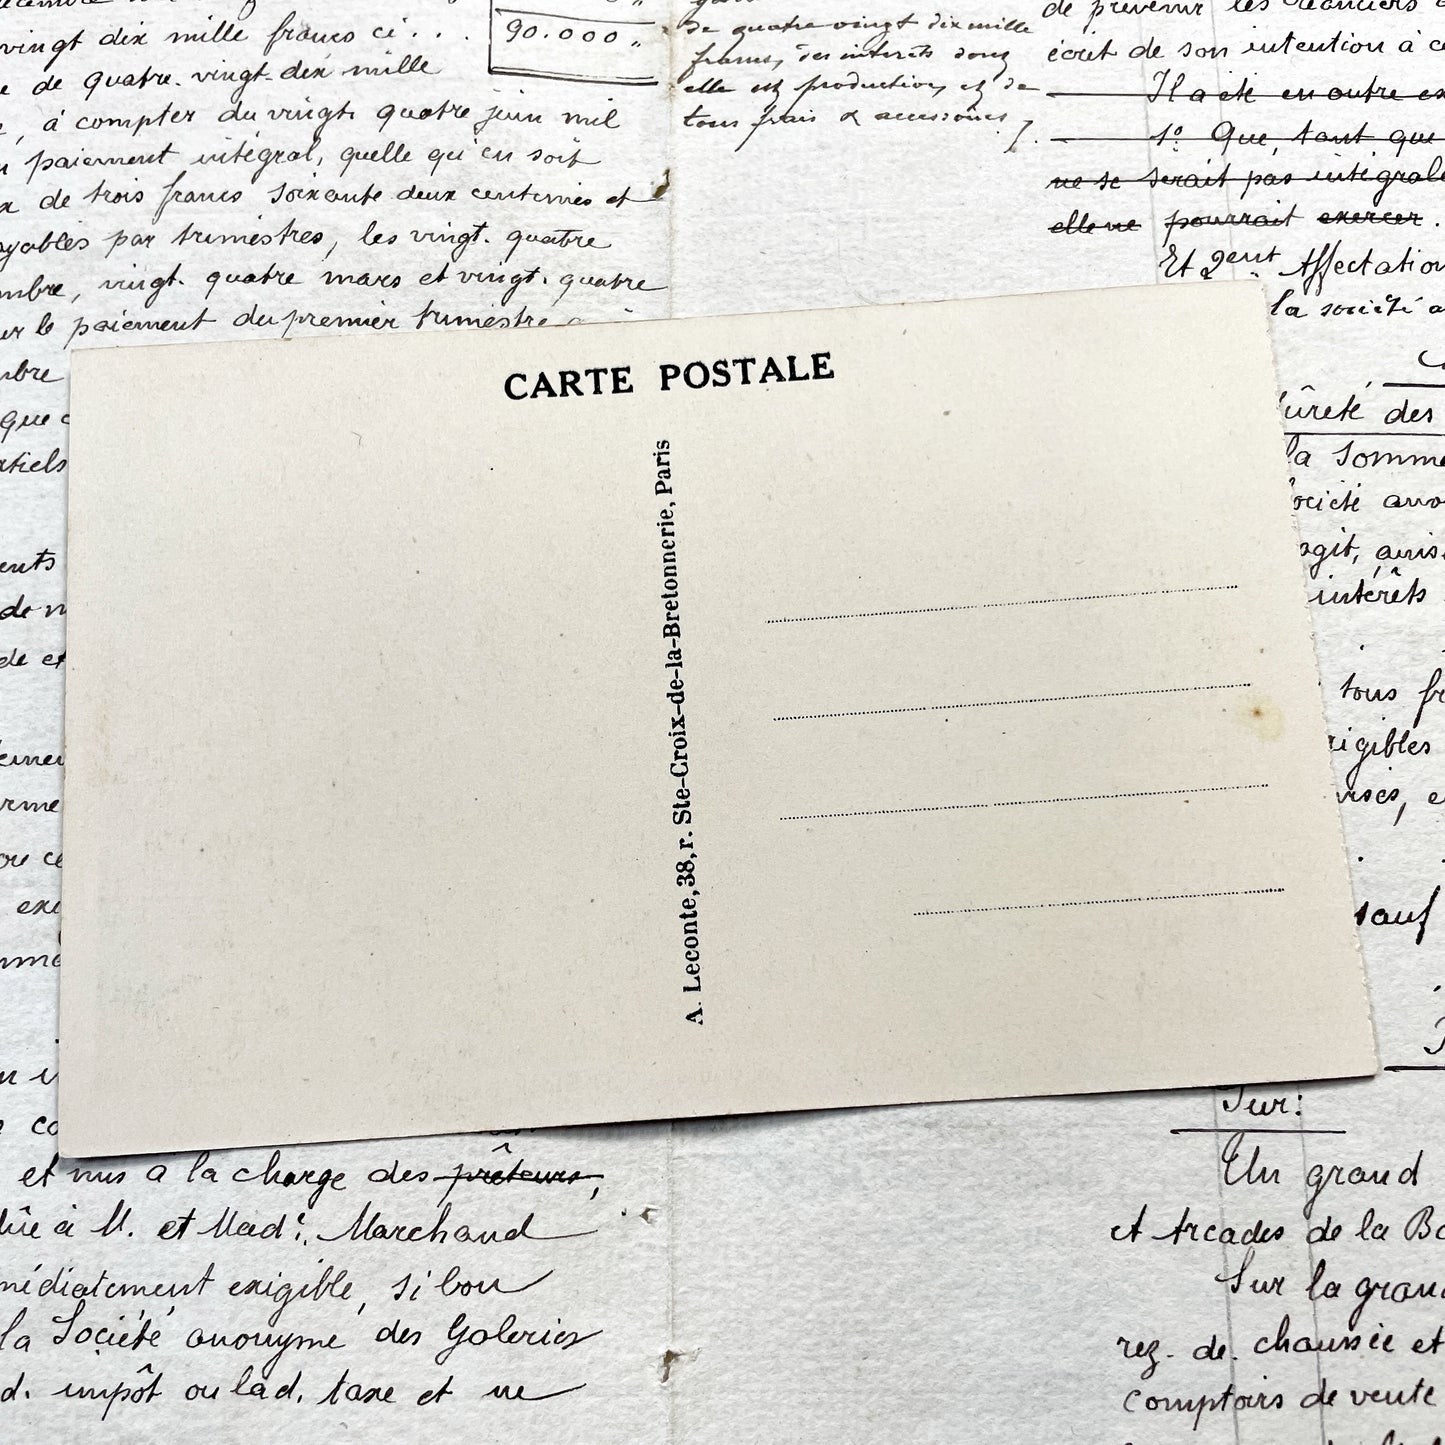 vingt dix mille francs ci . . .
90.000 "
de quatre. vingt-dix mille
, à compter du vingt quatre juin mil
paiement intégral, quelle qu'en soit
de trois francs soixante deux centimes et
payables par trimestres, les vingt. quatre
mbre, vingt. quatre mars et vingt. quatre
le paiement du premier trimestre
mbre
que
rtiels
ents
de
de
de quatre vingt dix mille
francs, des intérêts dont
elle est productive, et de
tous frais & accessoires
de prévenir les créanciers
écrit de son intention à
Il a été en outre
1º Que, tant que
ne se serait pas intégrale
elle ne pourrait exercer.
Et 2ent Affectation
la société
ûreté des
la Somme
ociété ano
agit,
intérêts
tous
xigibles
sauf
CARTE POSTALE
A. Leconte, 38, r. Ste-Croix-de-la-Bretonnerie, Paris
et mis a la charge des prêteurs,
à M. et Made. Marchand
médiatement exigible, si bon
la Société anonyme des Galeries
d. impôt ou lad. taxe et ne
Sur:
Un grand
et Arcades de la
Sur la grand
rez. de. chaussée et
comptoirs de vente